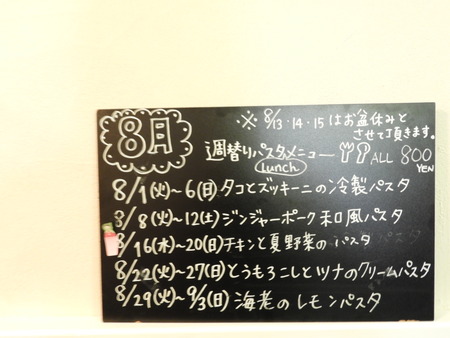 8月
※ 8/13・14・15はお盆休みと
させて頂きます。
週替りパスタメニュー ALL 800
Lunch YEN
8/1(火)~6(日)タコとズッキーニの冷製パスタ
8/8(火)~12(土)ジンジャーポーク和風パスタ
8/16(水)~20(日)チキンと夏野菜のパスタ
8/22(火)~27(日)とうもろこしとツナのクリームパスタ
8/29(火)~9/3(日)海老のレモンパスタ